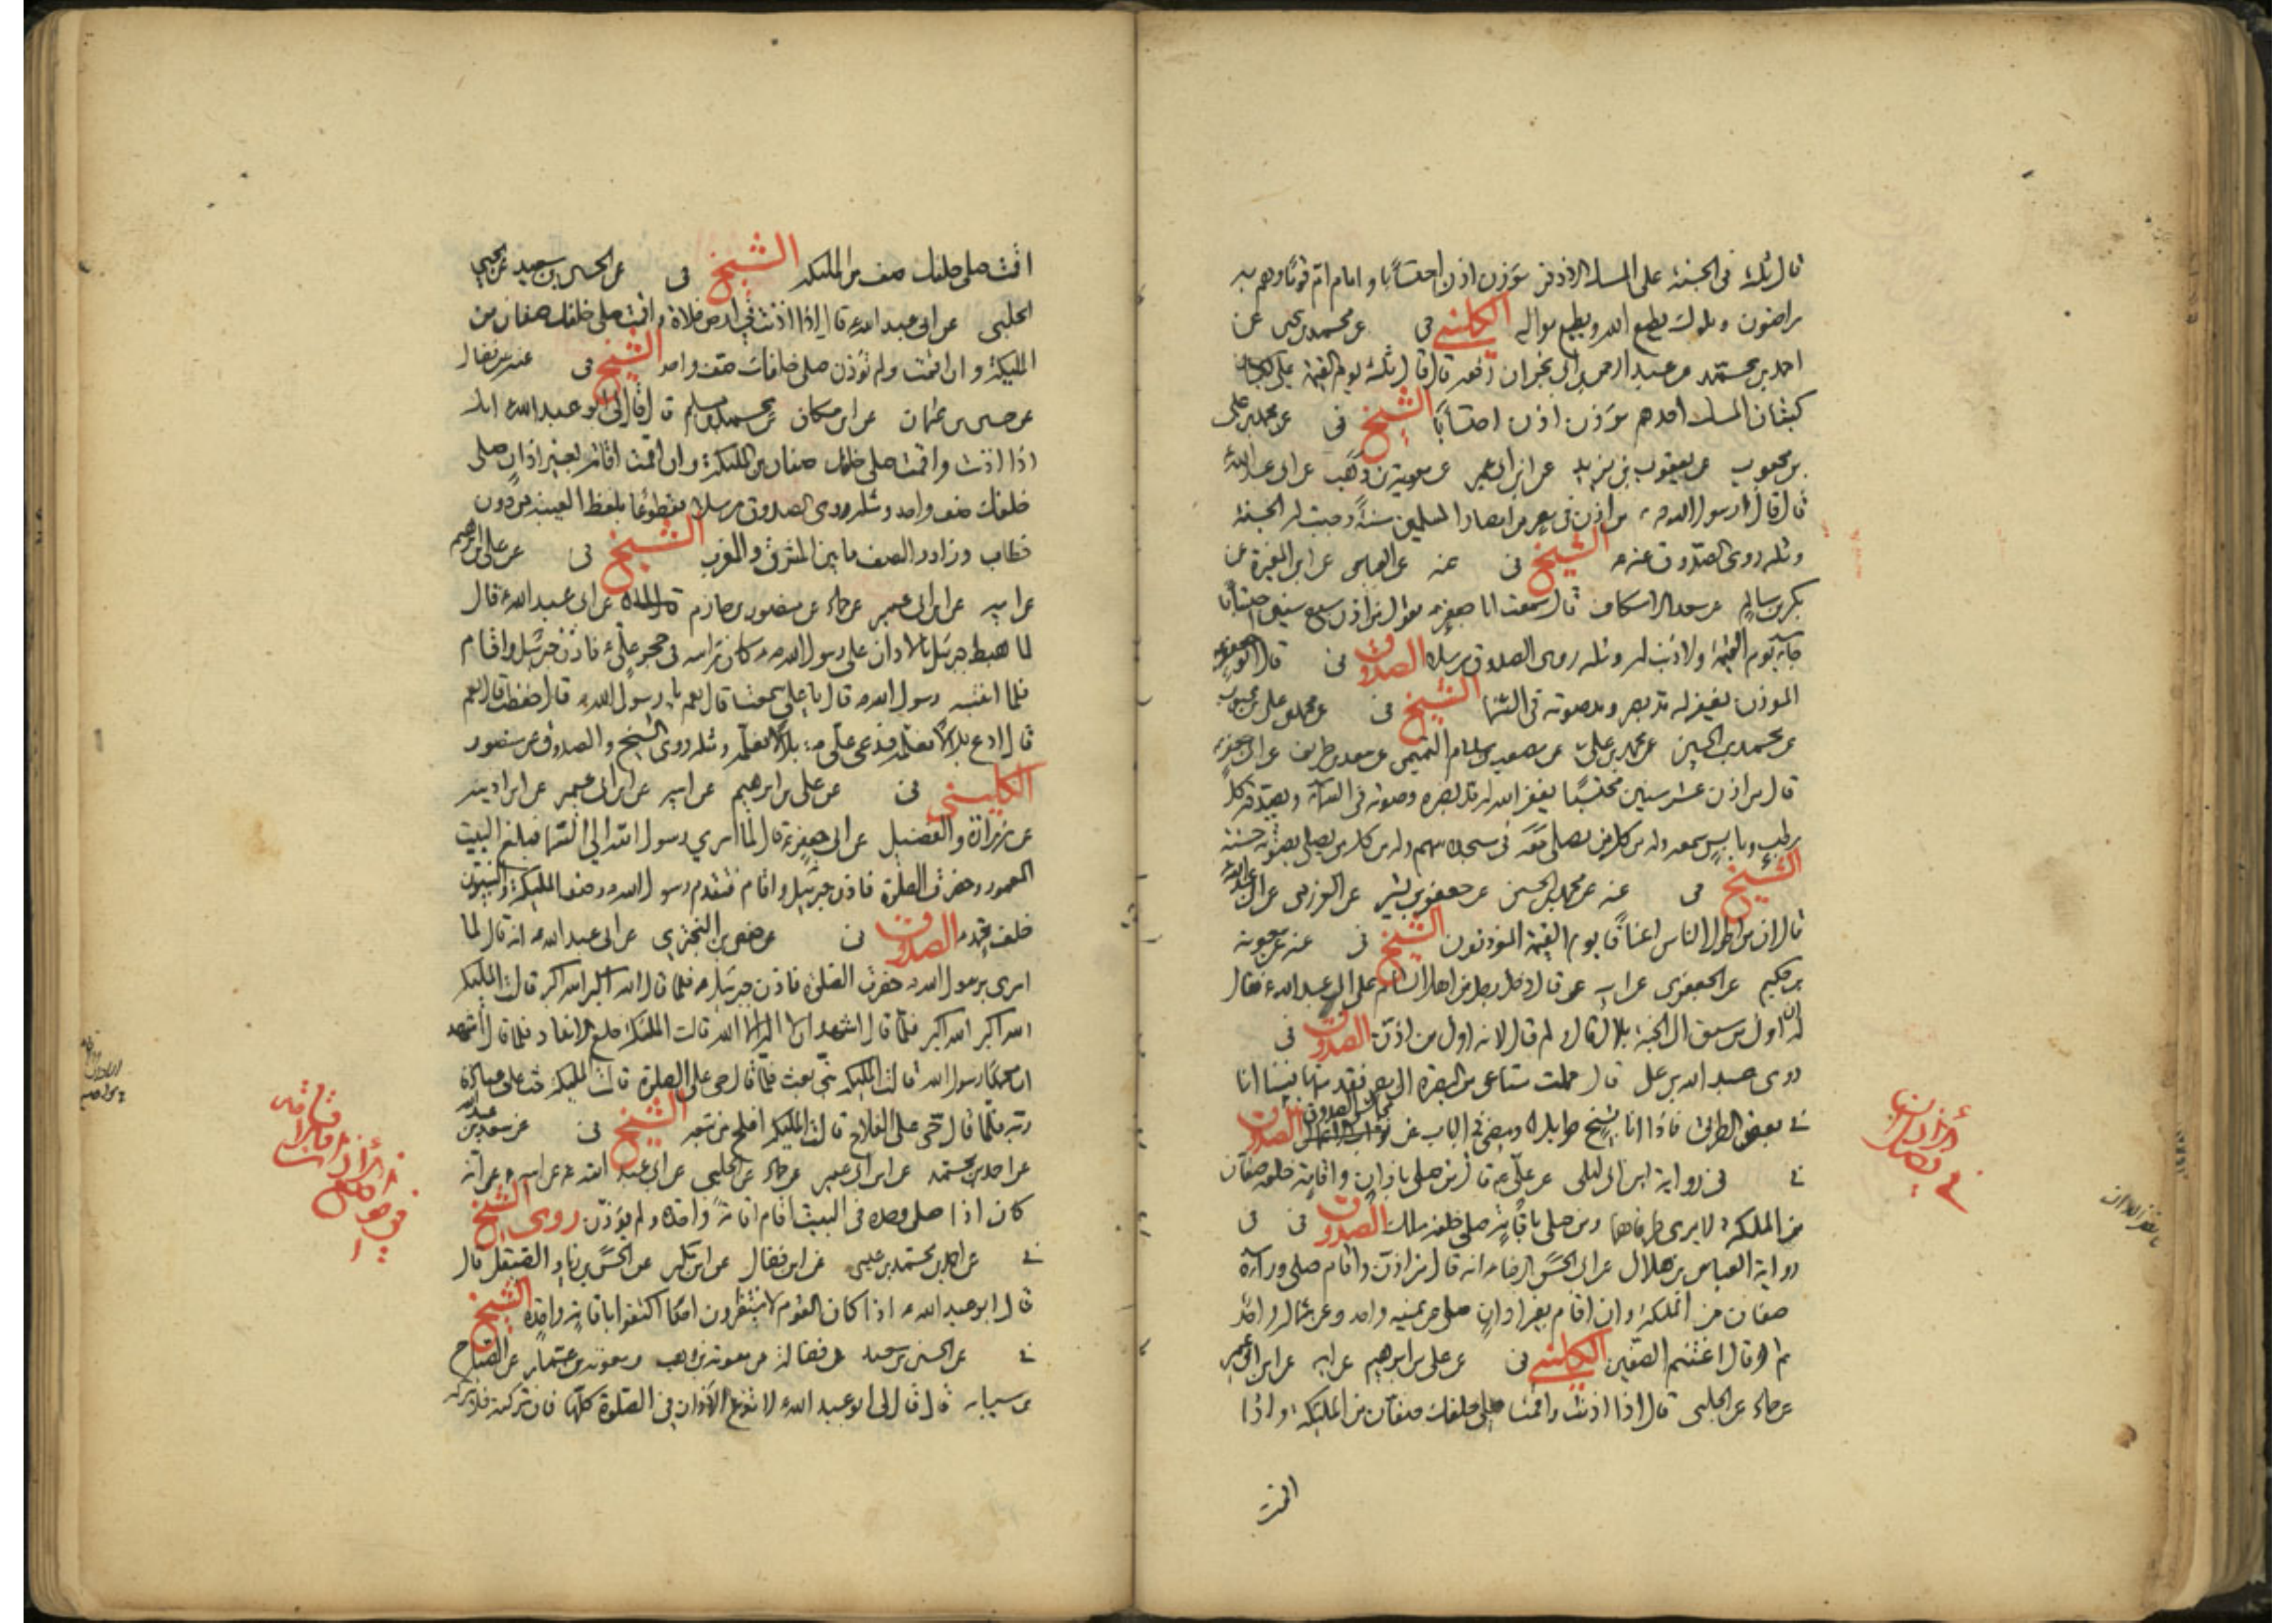 قال ثلثة فى الجنة على المسك الاذفر مؤذن اذن احتسابا و امام ام قوما وهم به
راضون و مملوك يطيع الله و يطيع مواليه الكلينى فى عن محمد بن يحيى عن
احمد بن محمد عن عبد الرحمن بن ابى نجران رفعه قال قال ثلثة يوم القيمة على
كثبان المسك احدهم مؤذن اذن احتسابا الشيخ فى عن محمد بن على
بن محبوب عن يعقوب بن يزيد عن ابن ابى عمير عن معوية بن وهب عن ابى عبد الله ع
قال قال رسول الله ص من اذن فى مصر من امصار المسلمين سنة وجبت له الجنة
و مثله روى الصدوق عنه ص الشيخ فى عنه عن العباس عن ابن المغيرة عن
بكر بن سالم عن سعد الاسكاف قال سمعت ابا جعفر ع يقول من اذن سبع سنين احتسابا
جاء يوم القيمة ولا ذنب له و مثله روى الصدوق مرسلا الصدوق فى قال ابو جعفر ع
المؤذن يغفر له مد بصره و مد صوته فى السما الشيخ فى عن محمد بن على بن محبوب
عن محمد بن الحسين عن محمد بن على عن مصعب بن سلام التميمى عن سعد بن طريف عن ابى جعفر ع
قال من اذن عشر سنين محتسبا يغفر الله له مد بصره و صوته فى السماء و يصدقه كل
رطب و يابس سمعه وله من كل من يصلى معه فى مسجده سهم وله من كل من يصلى بصوته حسنة
الشيخ فى عنه عن محمد بن الحسين عن جعفر بن بشير عن العرزمى عن ابى عبد الله ع
قال ان من اطول الناس اعناقا يوم القيمة المؤذنون الشيخ فى عنه عن معوية
بن حكيم عن الجعفرى عن ابيه عن قال دخل رجل من اهل الشام على ابى عبد الله ع فقال
له ان اول من سبق الى الجنة بلال قال ولم قال لانه اول من اذن الصدوق فى
روى عبد الله بن على قال حملت متاعى من البصرة الى مصر فقدمتها فبينا انا
فى بعض الطريق فاذا انا بشيخ طويل الصدوق
فى فى رواية ابن ابى ليلى عن على ع قال من صلى باذان و اقامة خلفه صفان
من الملئكة لا يرى طرفاهما و من صلى باقامة صلى خلفه ملك الصدوق فى فى
رواية العباس بن هلال عن ابى الحسن الرضا ع انه قال من اذن و اقام صلى وراءه
صفان من الملئكة و ان اقام بغير اذان صلى عن يمينه واحد و عن شماله واحد
ثم قال اغتنم الصفين الكلينى فى عن على بن ابرهيم عن ابيه عن ابن ابى عمير
عن حماد عن الحلبى قال اذا اذنت و اقمت صلى خلفك صفان من الملئكة و اذا
اقمت
اقمت صلى خلفك صف من الملئكة الشيخ فى عن الحسين بن سعيد عن يحيى
الحلبى عن ابى عبد الله ع قال اذا اذنت فى ارض فلاة و اقمت صلى خلفك صفان من
الملئكة و ان اقمت ولم تؤذن صلى خلفك صف واحد الشيخ فى عنه عن فضالة
عن حسين بن عثمان عن ابن مسكان عن محمد بن مسلم قال قال لى ابو عبد الله ع انك
اذا اذنت و اقمت صلى خلفك صفان من الملئكة و ان اقمت اقامة بغير اذان صلى
خلفك صف واحد و مثله روى الصدوق مرسلا مقطوعا بلفظ الغيبة من دون
خطاب و زاد و الصف ما بين المشرق و المغرب الشيخ فى عن على بن ابرهيم
عن ابيه عن ابن ابى عمير عن حماد عن منصور بن حازم عن ابى عبد الله ع قال
لما هبط جبرئيل بالاذان على رسول الله ص كان راسه فى حجر على ع فاذن جبرئيل و اقام
فلما انتبه رسول الله ص قال يا على سمعت قال نعم يا رسول الله ص قال حفظت قال نعم
قال ادع بلالا فعلمه فدعى على ع بلالا فعلمه و مثله روى الشيخ و الصدوق عن منصور
الكلينى فى عن على بن ابرهيم عن ابيه عن ابن ابى عمير عن ابن اذينة
عن زرارة و الفضيل عن ابى جعفر ع قال لما اسرى برسول الله الى السما فبلغ البيت
المعمور و حضرت الصلوة فاذن جبرئيل و اقام فتقدم رسول الله و صف الملئكة و النبيون
خلف محمد ص الصدوق فى عن حفص بن البخترى عن ابى عبد الله ع انه قال لما
اسرى برسول الله ص حضرت الصلوة فاذن جبرئيل ع فلما قال الله اكبر الله اكبر قالت الملئكة
الله اكبر الله اكبر فلما قال اشهد ان لا اله الا الله قالت الملئكة خلع الانداد فلما قال اشهد
ان محمدا رسول الله قالت الملئكة نبى بعث فلما قال حى على الصلوة قالت الملئكة حث على عبادة
ربه فلما قال حى على الفلاح قالت الملئكة افلح من تبعه الشيخ فى عن سعد بن عبد الله
عن احمد بن محمد عن ابن ابى عمير عن حماد عن الحلبى عن ابى عبد الله ع عن ابيه ع انه
كان اذا صلى وحده فى البيت اقام اقامة واحدة ولم يؤذن روى الشيخ
فى عن احمد بن محمد بن عيسى عن ابن فضال عن ابن بكير عن الحسن بن زياد الصيقل قال
قال ابو عبد الله ع اذا كان القوم لا ينتظرون احدا اكتفوا باقامة واحدة الشيخ
فى عن الحسين بن سعيد عن فضالة عن معوية بن وهب و معوية بن عمار عن الصباح
بن سيابة قال قال لى ابو عبد الله ع لا تدع الاذان فى الصلوة كلها فان تركته فلا تتركه